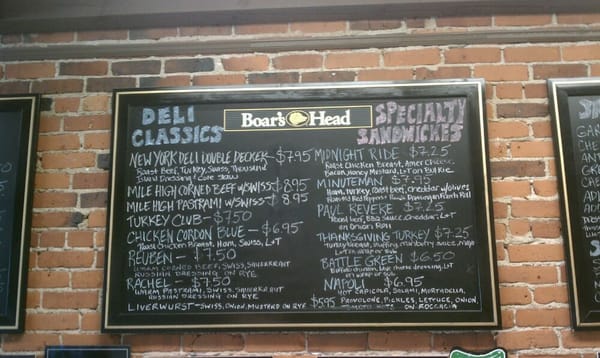 Boar's Head
DELI
CLASSICS
NEW YORK DELI DOUBLE DECKER - $7.95
Roast Beef, Turkey, Swiss, Thousand
Island Dressing & Cole Slaw
MILE HIGH CORNED BEEF W/SWISS $8.95
MILE HIGH PASTRAMI W/SWISS $8.95
TURKEY CLUB - $7.50
CHICKEN CORDON BLUE - $6.95
Roast Chicken Breast, Ham, Swiss, L+T
REUBEN - $7.50
WARM CORNED BEEF, SWISS, SAUERKRAUT
RUSSIAN DRESSING ON RYE
RACHEL - $7.50
WARM PASTRAMI, SWISS, SAUERKRAUT
RUSSIAN DRESSING ON RYE
LIVERWURST - SWISS, ONION, MUSTARD ON RYE $5.95
SPECIALTY
SANDWICHES
MIDNIGHT RIDE $7.25
Roast Chicken Breast, Amer Cheese,
Bacon, Honey Mustard, L+T on Bulkie
MINUTEMAN $7.95
Ham, Turkey, Roast Beef, Cheddar w/olives
PAUL REVERE $7.25
Roast Beef, BBQ Sauce, Cheddar, L+T
on Onion Roll
THANKSGIVING TURKEY $7.25
Turkey Breast, Stuffing, Cranberry Sauce, mayo
BATTLE GREEN $6.50
Buffalo Chicken, Blue Cheese Dressing, L+T
NAPOLI $6.95
HOT CAPICOLA, SALAMI, MORTADELLA,
PROVOLONE, PICKLES, LETTUCE, ONION,
ON FOCCACIA